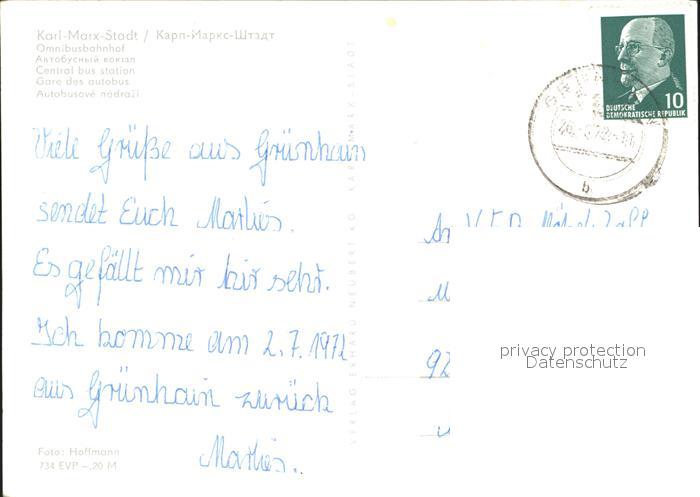 Karl-Marx-Stadt / Карл-Маркс-Штадт
Omnibusbahnhof
Автобусный вокзал
Central bus station
Gare des autobus
Autobusové nádraží
Viele Grüße aus Grünhain
sendet Euch Marlies.
Es gefällt mir hir sehr.
Ich komme am 2.7.1972
aus Grünhain zurück
Marlies.
Foto: Hoffmann
734 EVP –,20 M
VERLAG ERHARD NEUBERT KG KARL-MARX-STADT
10
DEUTSCHE
DEMOKRATISCHE REPUBLIK
b
An V E B
M
92
privacy protection
Datenschutz